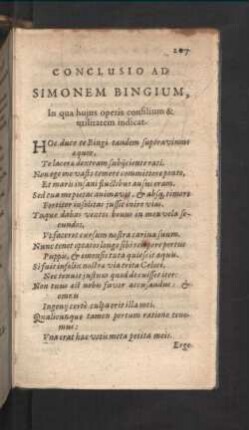 CONCLUSIO AD
SIMONEM BINGIUM,
In qua hujus operis consilium &
utilitatem indicat.
HOc duce te Bingi tandem supera vimus
æquor,
Te lacera dextram subjiciente rati.
Non ego me vasto temere committere ponto,
Et maris insani fluctibus ausus eram.
Sed tua me pietas animavit, & absq; timore
Fortiter insolitas jussit inire vias.
Tuque dabas ventos bonus in mea vela se-
cundos,
Ut faceret cursum nostra carina suum.
Nunc tenet optatos longo sibi tempore portus
Puppis, & emonsis tuta quiescit aquis.
Si fuit infelix nostra via trita
Nec tenuit justum quod decuisset iter:
Non tuus aut nobis favor accusandus: &
omen
Ingenii certè culpa erit illa mei.
Qualicunque tamen portum ratione tene-
mus:
Una erat hac votis meta petita meis.
Ergo